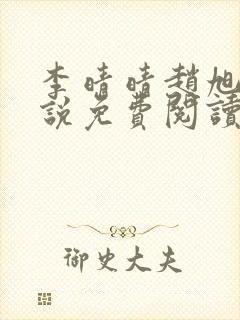 李晴晴趙旭
說免費閱讀
御史大夫